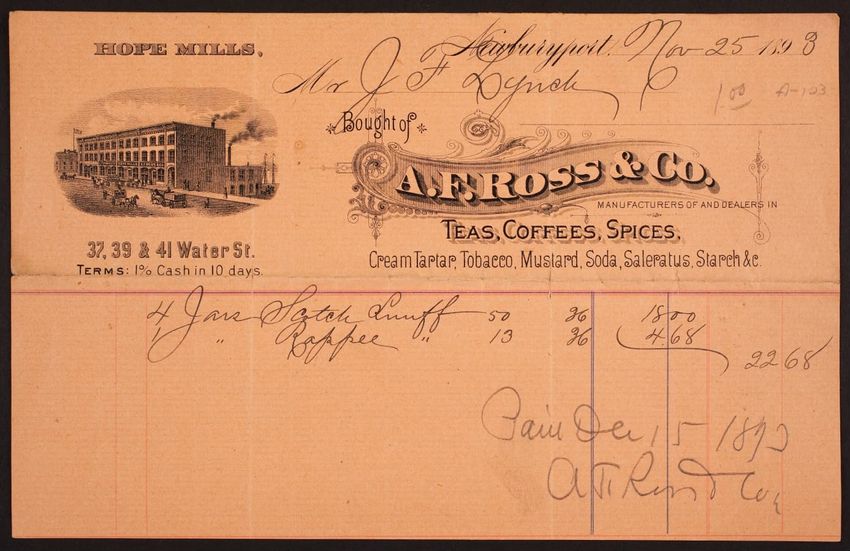 HOPE MILLS.
Newburyport, Nov 25 1893
Mr J F Lynch
1.00 A-123
Bought of
A.F. ROSS & CO.
MANUFACTURERS OF AND DEALERS IN
TEAS, COFFEES, SPICES,
37, 39 & 41 Water St.
Cream Tartar, Tobacco, Mustard, Soda, Saleratus, Starch &c.
TERMS: 1% Cash in 10 days.
4 Jars Scotch Snuff 50 36 18 00
1 " Rappee " 13 36 4.68
22 68
Paid Dec 15 1893
A F Ross & Co